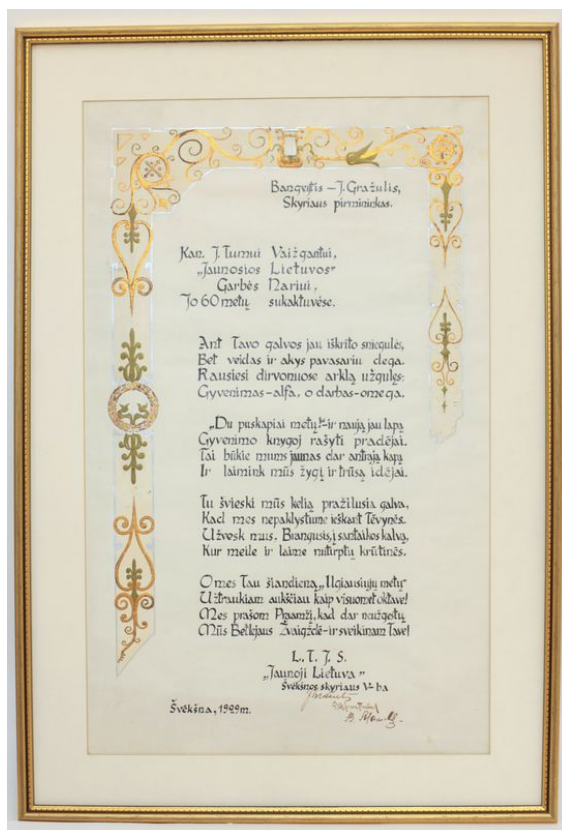 Bangvytis – J. Gražulis,
Skyriaus pirmininkas.
Kan. J. Tumui Vaižgantui,
„Jaunosios Lietuvos"
Garbės Nariui,
Jo 60 metų sukaktuvėse.
Ant Tavo galvos jau iškrito sniegulės,
Bet veidas ir akys pavasariu dega.
Rausiesi dirvonuose arklą užgulęs:
Gyvenimas-alfa, o darbas-omega.
„Du puskapiai metų!"-ir naują jau lapą
Gyvenimo knygoj rašyti pradėjai.
Tai būkie mums jaunas dar antrąją kapą
Ir laimink mūs žygį ir trūsą idėjai.
Tu švieski mūs kelią pražilusia galva,
Kad mes nepaklystume ieškant Tėvynės.
Užvesk mus, Brangusis, į santaikos kalvą,
Kur meile ir laime nutirptų krūtinės.
O mes Tau šiandieną „Ilgiausiųjų metų"
Užtraukiam aukščiau kaip visuomet oktave!
Mes prašom Praamžį, kad dar neužgestų
Mūs Betliejaus Žvaigždė-ir sveikinam Tave!
L. T. J. S.
„Jaunoji Lietuva"
Švėkšnos skyriaus V-ba
Švėkšna, 1929 m.